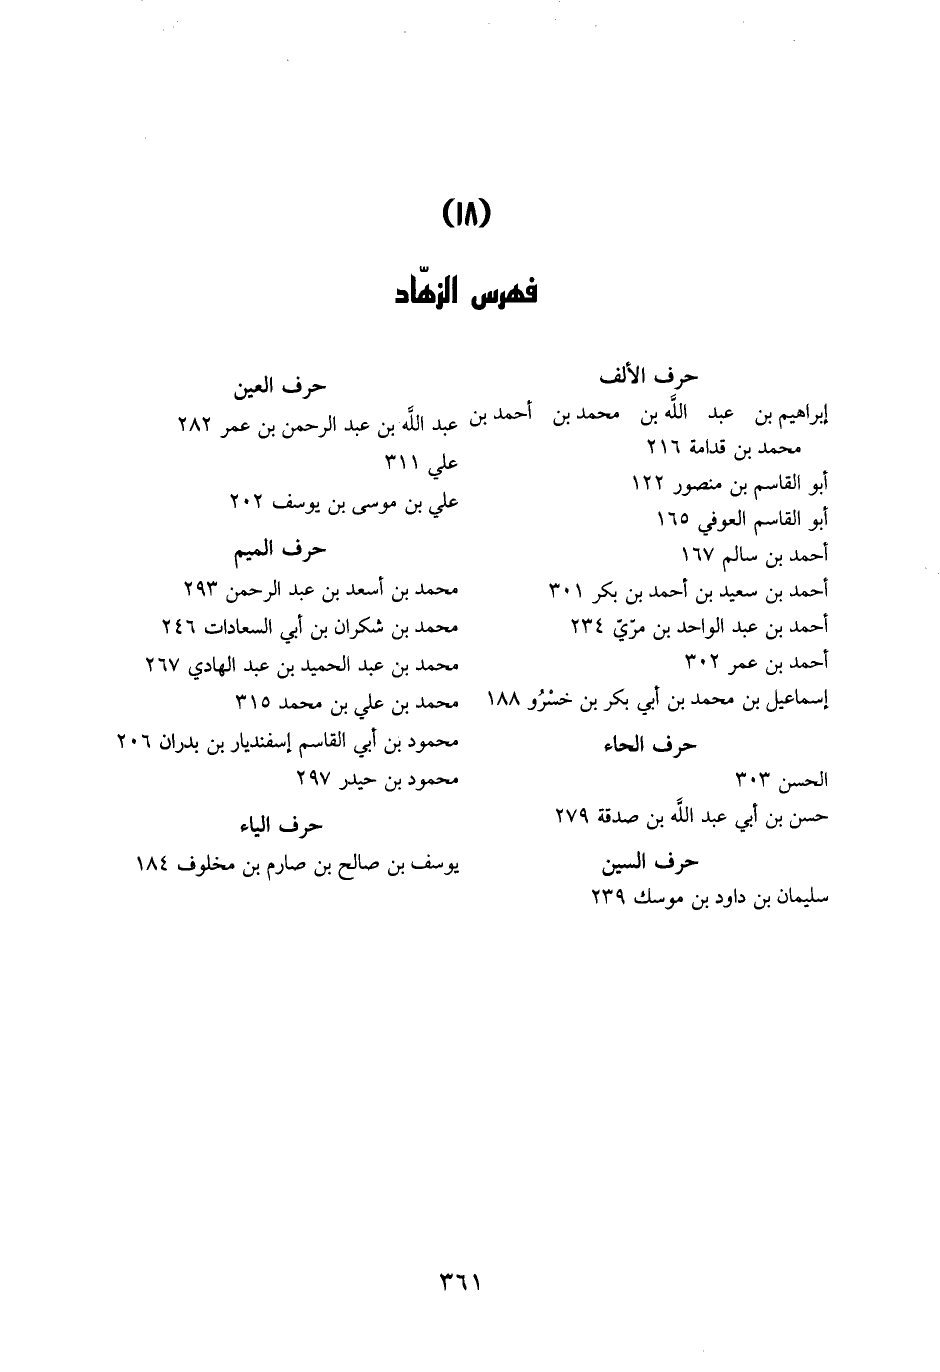 (١٨)
فهرس الزهّاد
حرف الألف
إبراهيم بن عبد اللَّه بن محمد بن أحمد بن
محمد بن قدامة ٢١٦
أبو القاسم بن منصور ١٢٢
أبو القاسم العوفي ١٦٥
أحمد بن سالم ١٦٧
أحمد بن سعيد بن أحمد بن بكر ٣٠١
أحمد بن عبد الواحد بن مرّيّ ٢٣٤
أحمد بن عمر ٣٠٢
إسماعيل بن محمد بن أبي بكر بن خسْرُو ١٨٨
حرف الحاء
الحسن ٣٠٣
حسن بن أبي عبد اللَّه بن صدقة ٢٧٩
حرف السين
سليمان بن داود بن موسك ٢٣٩
حرف العين
عبد اللَّه بن عبد الرحمن بن عمر ٢٨٢
علي ٣١١
علي بن موسى بن يوسف ٢٠٢
حرف الميم
محمد بن أسعد بن عبد الرحمن ٢٩٣
محمد بن شكران بن أبي السعادات ٢٤٦
محمد بن عبد الحميد بن عبد الهادي ٢٦٧
محمد بن علي بن محمد ٣١٥
محمود بن أبي القاسم إسفنديار بن بدران ٢٠٦
محمود بن حيدر ٢٩٧
حرف الياء
يوسف بن صالح بن صارم بن مخلوف ١٨٤
٣٦١